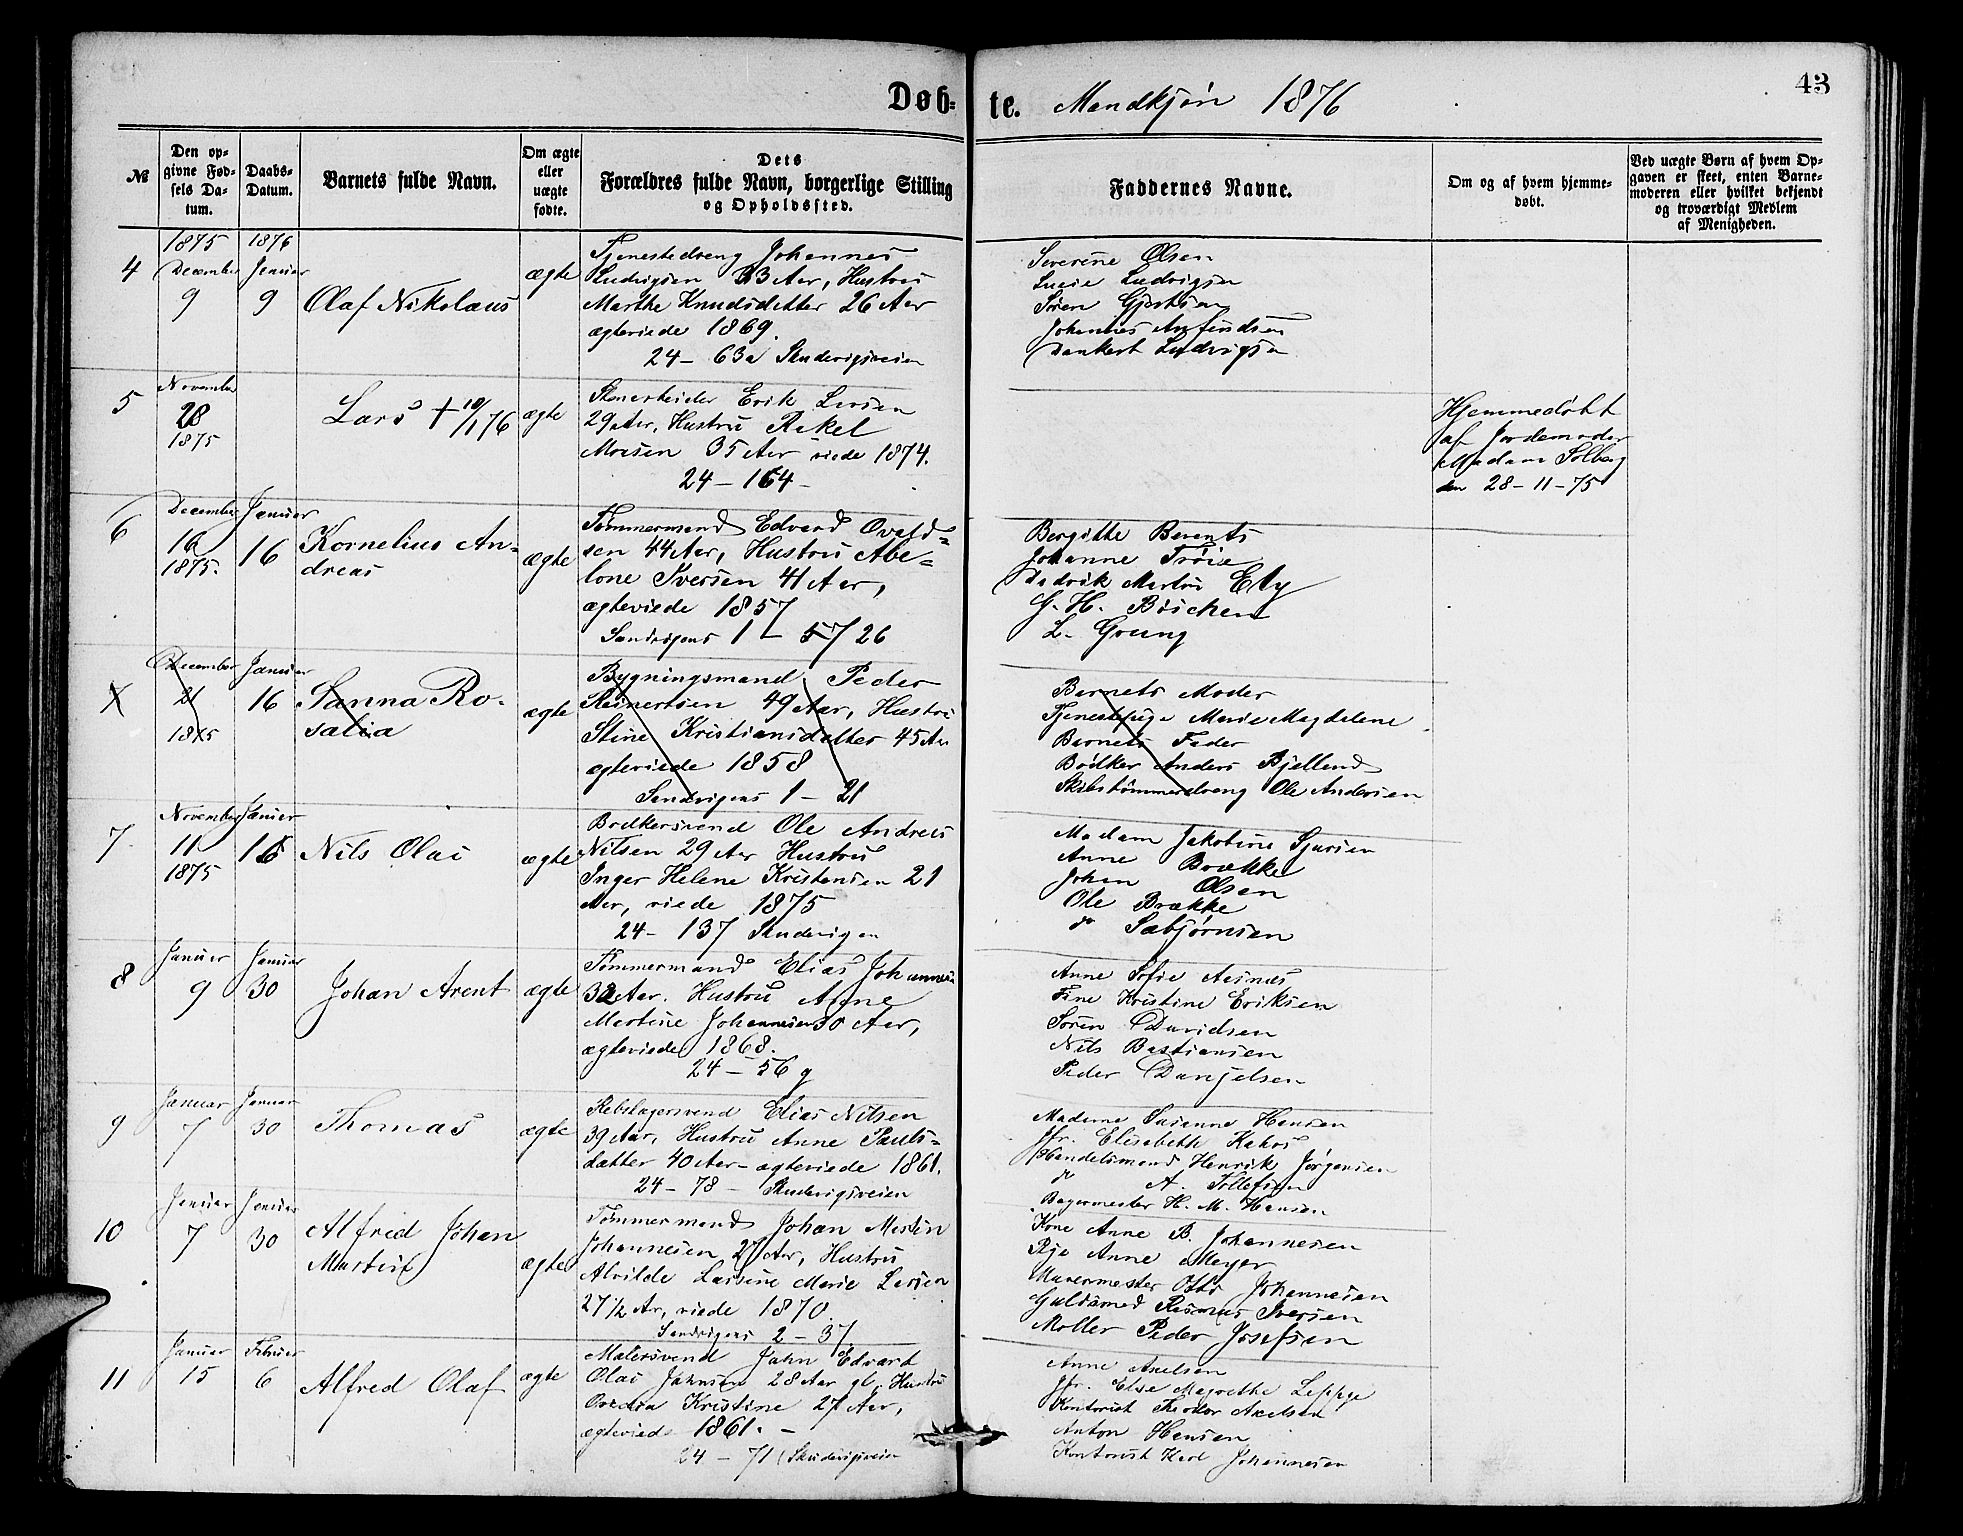 43
Døb- te. Mandkjøn 1876
№
Den opgivne Fødsels Datum.
Daabs-Datum.
Barnets fulde Navn.
Om ægte eller uægte fødte.
Dets Forældres fulde Navn, borgerlige Stilling og Opholdssted.
Faddernes Navne.
Om og af hvem hjemmedøbt.
Ved uægte Børn af hvem Opgaven er skeet, enten Barnemoderen eller hvilket bekjendt og troværdigt Medlem af Menigheden.
4
1875
December
9
1876
Januar
9
Olaf Nikolaus
ægte
Tjenestedreng Johannes
Ludvigsen 33 Aar, Hustru
Marthe Knudsdatter 26 Aar
ægteviede 1869.
24 - 63a Skudevigsveien
Severine Olsen
Lucie Ludvigsen
Søren Gjertsen
Johannes Anfindsen
Dankert Ludvigsen
5
November
28
1875
Lars + 10/1 76
ægte
Stenarbeider Erik Larsen
29 Aar, Hustru Rakel
Monsen 35 Aar viede 1874.
24 - 164 -
Hjemmedøbt
af Jordemoder
Madam Solberg
den 28 - 11 - 75
6
December
16
1875.
Januar
16
Kornelius An-
dreas
ægte
Tømmermand Edvard Ovald-
sen 44 Aar, Hustru Abe-
lone Iversen 41 Aar,
ægteviede 1857
Sandvigens 1 - 26
Bergitte Berents
Johanne Trøie
Didrik Martin Ely
G. H. Büschen
L. Grung
December
21
1875
Januar
16
Sanna Ro-
salia
ægte
Bygningsmand Peder
Reinertsen 49 Aar, Hustru
Stine Kristiansdatter 45 Aar
ægteviede 1858
Sandvigens 1 - 21
Barnets Moder
Tjenestepige Marie Magdalene
Barnets Fader
Bødker Anders Bjelland
Skibstømmerdreng Ole Andersen
7
November
11
1875
Januar
16
Nils Olai
ægte
Bødkersvend Ole Andreas
Nilsen 29 Aar Hustru
Inger Helene Kristensen 21
Aar, viede 1875
24 - 137 Skudevigen
Madam Jakobine Sjursen
Anne Brække
Johan Olsen
Ole Brække
do Sæbjørnsen
8
Januar
9
Januar
30
Johan Arent
ægte
Tømmermand Elias Johannesen
32 Aar. Hustru Anne
Martine Johannesen 30 Aar,
ægteviede 1868.
24 - 56 g
Anne Sofie Aasnæs
Tine Kristine Eriksen
Søren Davidsen
Nils Bastiansen
Peder Danjelsen
9
Januar
7
Januar
30
Thomas
ægte
Rebslagersvend Elias Nilsen
39 Aar, Hustru Anne Pauls-
datter 40 Aar - ægteviede 1861.
24 - 78 - Skudevigsveien
Madame Susanne Hansen
Jfr. Elisabeth Kahrs
Handelsmand Henrik Jørgensen
do A. Tollefsen
Bagermester H. M. Hansen
10
Januar
7
Januar
30
Alfred Johan
Martin
ægte
Tømmermand Johan Martin
Johannesen, 27 Aar, Hustru
Alvilde Lassine Marie Larsen
27 1/2 Ar, viede 1870.
Sandvigens 2 - 37
Kone Anne B. Johannesen
Pige Anne Meyer
Murermester Otto Johannesen
Guldsmed Rasmus Iversen
Møller Peder Josefsen
11
Januar
15
Februar
6
Alfred Olaf
ægte
Malersvend Jahn Edvard
Olai Jahnsen 28 Aar gl. Hustru
Ovedia Kristine 27 Aar,
ægteviede 1861. -
24 - 71 Skudevigsveien
Anne Axelsen
Jfr. Else Magrethe Leppge
Kontorist Teodor Axelsen
Anton Hansen
Kontorist Karl Johannesen